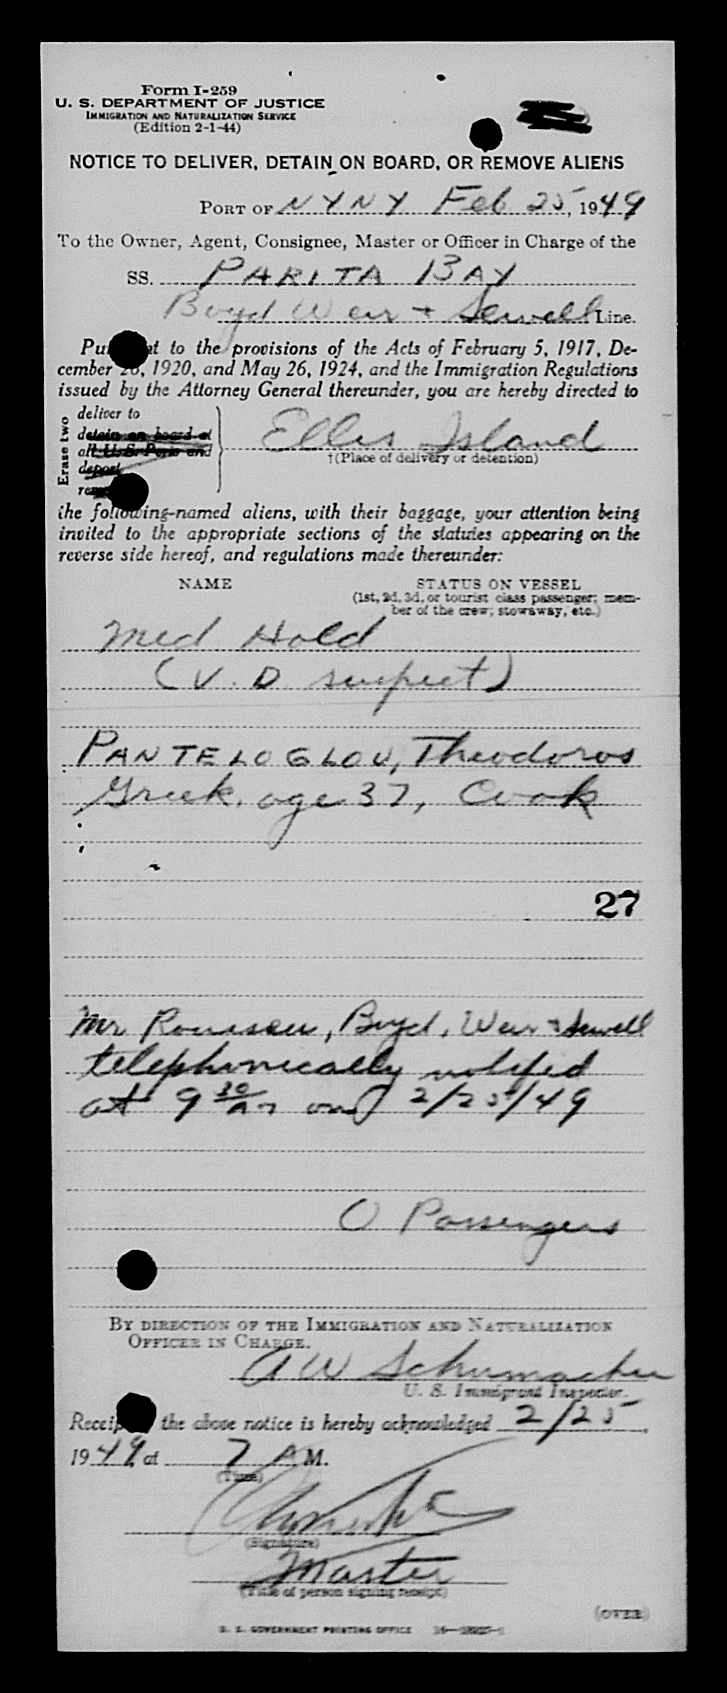 Form I-259
U. S. DEPARTMENT OF JUSTICE
IMMIGRATION AND NATURALIZATION SERVICE
(Edition 2-1-44)
NOTICE TO DELIVER, DETAIN ON BOARD, OR REMOVE ALIENS
PORT OF N Y N Y Feb 25, 1949
To the Owner, Agent, Consignee, Master or Officer in Charge of the
SS. PARITA BAY
Boyd Weir & Sewell Line.
to the provisions of the Acts of February 5, 1917, De-
cember 26, 1920, and May 26, 1924, and the Immigration Regulations
issued by the Attorney General thereunder, you are hereby directed to
Erase two
deliver to
detain on board at
all U.S. Ports and
deport
Ellis Island
†(Place of delivery or detention)
the following-named aliens, with their baggage, your attention being
invited to the appropriate sections of the statutes appearing on the
reverse side hereof, and regulations made thereunder:
NAME STATUS ON VESSEL
(1st, 2d, 3d, or tourist class passenger; mem-
ber of the crew; stowaway, etc.)
Med Hold
(V. D suspect)
PANTELOGLOU, Theodoros
Greek, age 37, Cook
27
Mr , Boyd, Weir & Sewell
telephonically notified
at 9 30 on 2/25/49
0 Passengers
BY DIRECTION OF THE IMMIGRATION AND NATURALIZATION
OFFICER IN CHARGE.
A W Schumacher
U. S. Immigrant Inspector.
the above notice is hereby acknowledged 2/25,
1949, at 7 A M.
(Time)
(Signature)
Master
(Title of person signing receipt)
(OVER)
U. S. GOVERNMENT PRINTING OFFICE